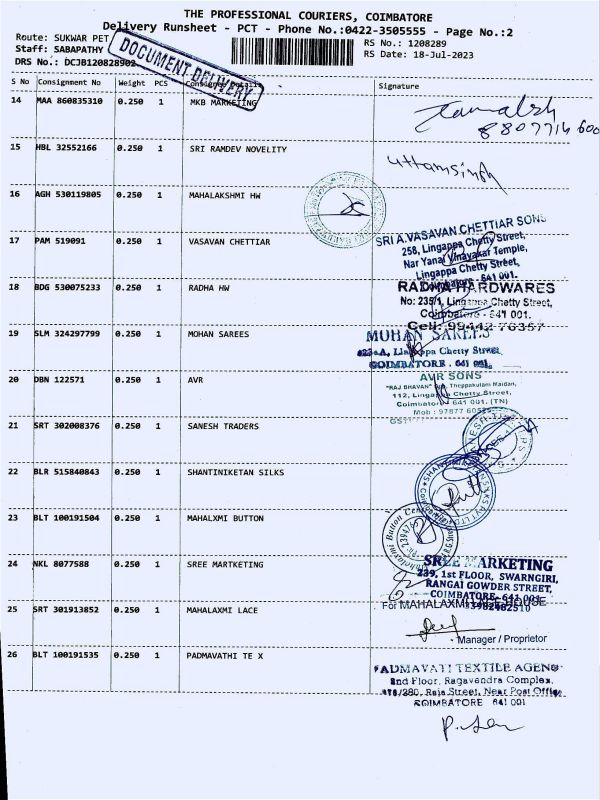 THE PROFESSIONAL COURIERS, COIMBATORE
Delivery Runsheet - PCT - Phone No.:0422-3505555 - Page No.:2
Route: SUKWAR PET
RS No.: 1208289
Staff: SABAPATHY
RS Date: 18-Jul-2023
DRS No.: DCJB120828902
DOCUMENT DELIVERY
S No Consignment No Weight PCS Consignee Details Signature
14 MAA 860835310 0.250 1 MKB MARKETING
15 HBL 32552166 0.250 1 SRI RAMDEV NOVELITY
uttamsingh
16 AGH 530119805 0.250 1 MAHALAKSHMI HW
17 PAM 519091 0.250 1 VASAVAN CHETTIAR
SRI A.VASAVAN CHETTIAR SONS
258, Lingappa Chetty Street,
Nar Yanai Vinayakar Temple,
Lingappa Chetty Street,
Coimbatore - 641 001.
18 BDG 530075233 0.250 1 RADHA HW
RADHA HARDWARES
No: 235/1, Lingappa Chetty Street,
Coimbatore - 641 001.
Cell: 99442 76357
19 SLM 324297799 0.250 1 MOHAN SAREES
MOHAN SAREES
Lingappa Chetty Street,
COIMBATORE - 641 001.
20 DBN 122571 0.250 1 AVR
AVR SONS
"RAJ BHAVAN" Theppakulam Maidan,
112, Lingappa Chetty Street,
Coimbatore 641 001. (TN)
Mob : 97877
21 SRT 302008376 0.250 1 SANESH TRADERS
22 BLR 515840843 0.250 1 SHANTINIKETAN SILKS
23 BLT 100191504 0.250 1 MAHALXMI BUTTON
24 NKL 8077588 0.250 1 SREE MARTKETING
SREE MARKETING
239, 1st FLOOR, SWARNGIRI,
RANGAI GOWDER STREET,
COIMBATORE-641 001
25 SRT 301913852 0.250 1 MAHALAXMI LACE
For MAHALAXMI LACE HOUSE
Manager / Proprietor
26 BLT 100191535 0.250 1 PADMAVATHI TE X
PADMAVATI TEXTILE AGENC
2nd Floor, Ragavendra Complex,
Raja Street, Near Post Office
COIMBATORE 641 001